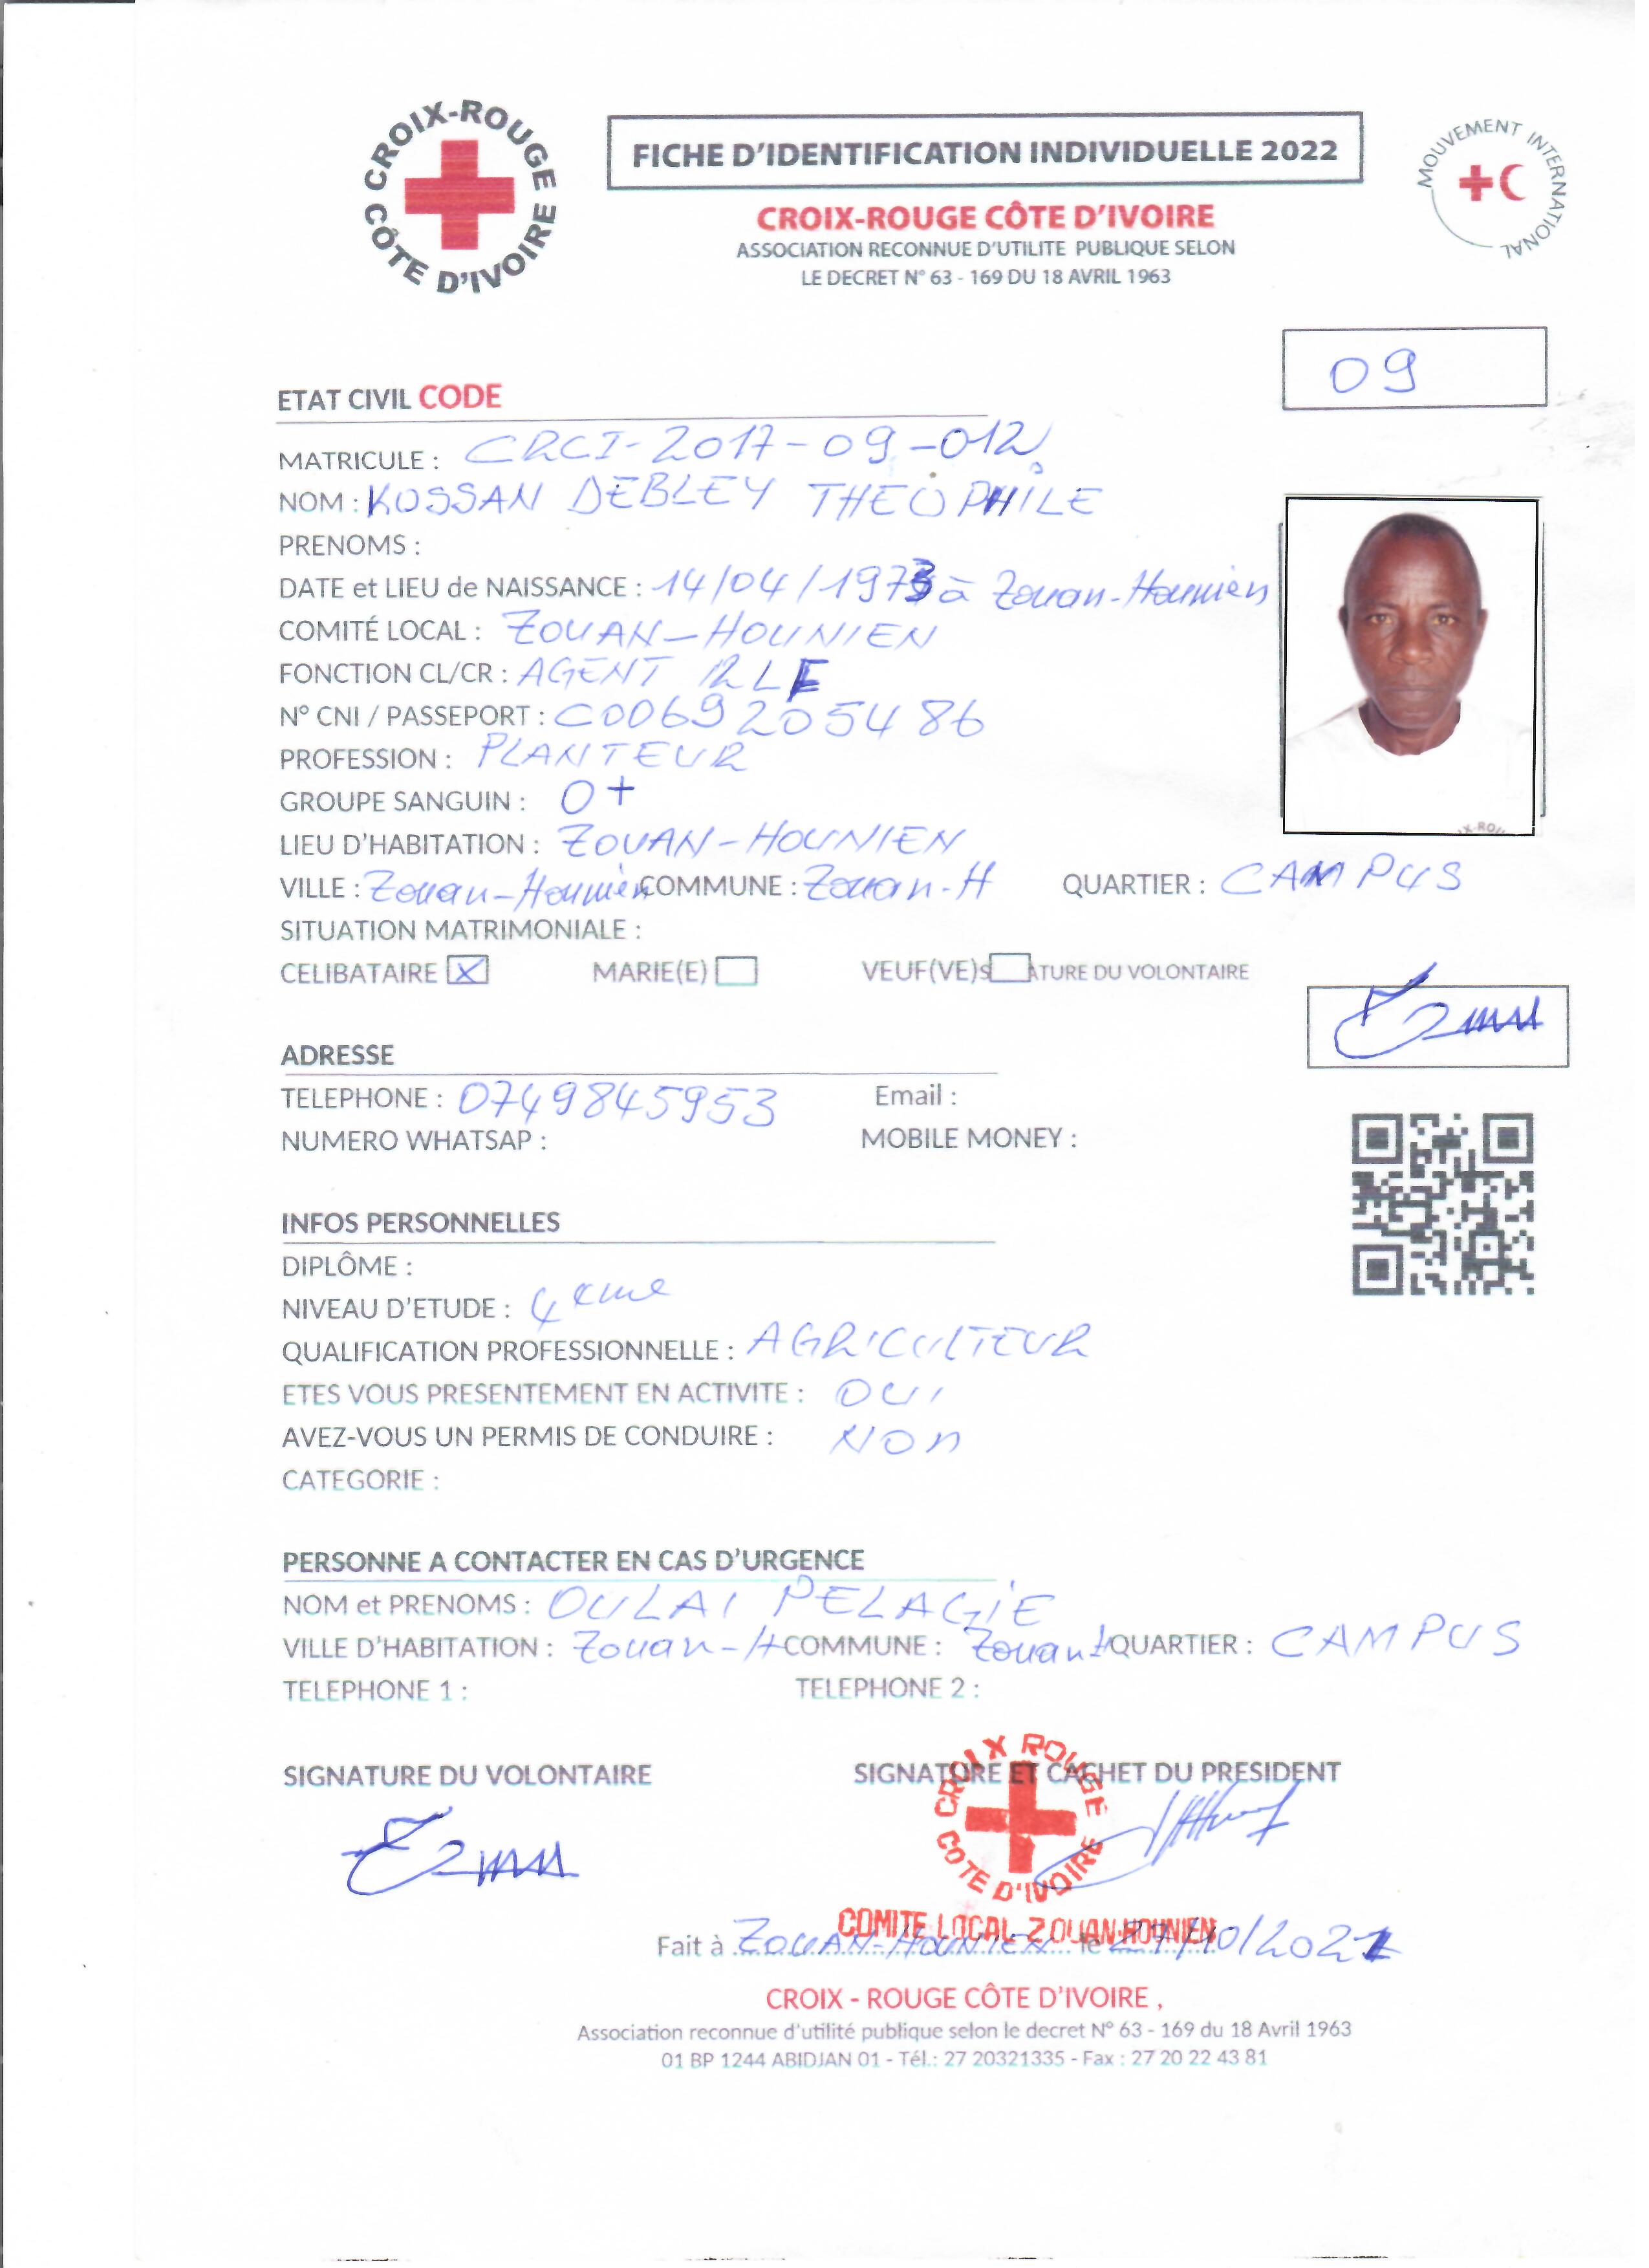 CROIX-ROUGE CÔTE D'IVOIRE
FICHE D'IDENTIFICATION INDIVIDUELLE 2022
MOUVEMENT INTERNATIONAL
CROIX-ROUGE CÔTE D'IVOIRE
ASSOCIATION RECONNUE D'UTILITE PUBLIQUE SELON
LE DECRET N° 63 - 169 DU 18 AVRIL 1963
09
ETAT CIVIL CODE
MATRICULE : CRCI-2017-09-012
NOM : KOSSAN DEBLEY THEOPHILE
PRENOMS :
DATE et LIEU de NAISSANCE : 14/04/1973 à Zouan-Hounien
COMITÉ LOCAL : ZOUAN-HOUNIEN
FONCTION CL/CR : AGENT RLF
N° CNI / PASSEPORT : C0069205486
PROFESSION : PLANTEUR
GROUPE SANGUIN : O+
LIEU D'HABITATION : ZOUAN-HOUNIEN
VILLE : Zouan-Hounien COMMUNE : Zouan-H QUARTIER : CAMPUS
SITUATION MATRIMONIALE :
CELIBATAIRE X MARIE(E) VEUF(VE)S ATURE DU VOLONTAIRE
ADRESSE
TELEPHONE : 0749845953 Email :
NUMERO WHATSAP : MOBILE MONEY :
INFOS PERSONNELLES
DIPLÔME :
NIVEAU D'ETUDE : 4eme
QUALIFICATION PROFESSIONNELLE : AGRICULTEUR
ETES VOUS PRESENTEMENT EN ACTIVITE : OUI
AVEZ-VOUS UN PERMIS DE CONDUIRE : NON
CATEGORIE :
PERSONNE A CONTACTER EN CAS D'URGENCE
NOM et PRENOMS : OULAI PELAGIE
VILLE D'HABITATION : Zouan-H COMMUNE : Zouan-H QUARTIER : CAMPUS
TELEPHONE 1 : TELEPHONE 2 :
SIGNATURE DU VOLONTAIRE SIGNATURE ET CACHET DU PRESIDENT
CROIX ROUGE COTE D'IVOIRE
COMITE LOCAL ZOUAN-HOUNIEN
Fait à ZOUAN-HOUNIEN le 27/10/2021
CROIX - ROUGE CÔTE D'IVOIRE ,
Association reconnue d'utilité publique selon le decret N° 63 - 169 du 18 Avril 1963
01 BP 1244 ABIDJAN 01 - Tél.: 27 20321335 - Fax : 27 20 22 43 81